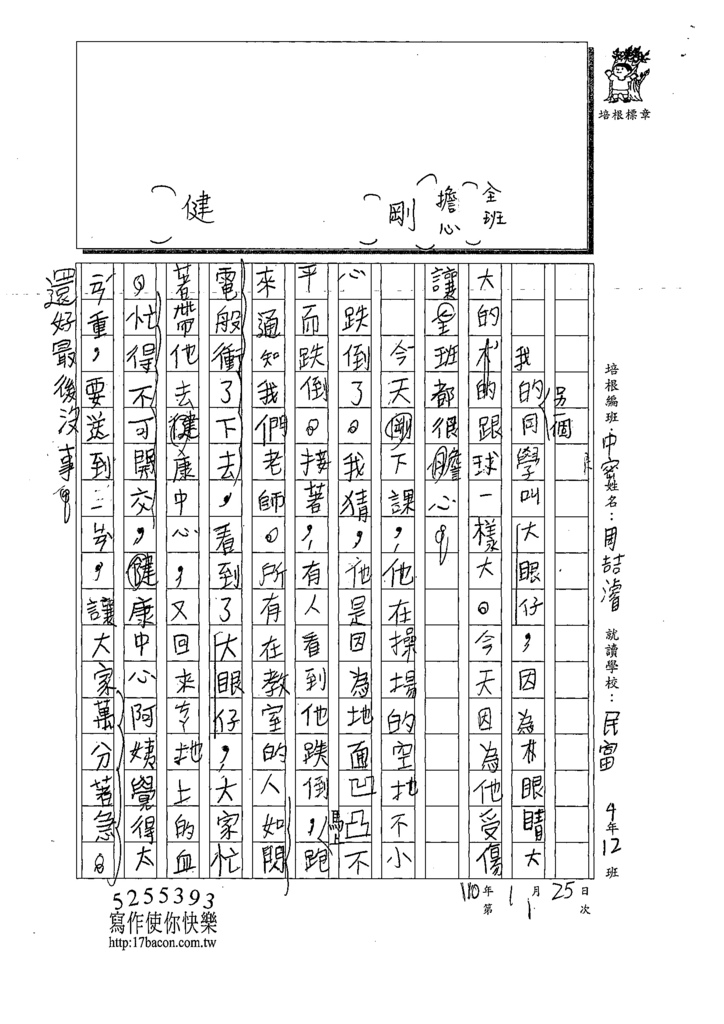 培根標章
全班
擔心
剛
健
培根編班：中 姓名：周喆濬 就讀學校：民富 4年12班
110年1月25日
第1次
另一個
我的同學叫大眼仔，因為林眼睛大
大的，的跟球一樣大。今天因為他受傷
讓全班都很擔心。
今天剛下課，他在操場的空地不小
心跌倒了。我猜，他是因為地面凹凸不
平而跌倒。接著，有人看到他跌倒，馬上跑
來通知我們老師。所有在教室的人如閃
電般衝了下去，看到了大眼仔，大家忙
著帶他去健康中心，又回來 地上的血
。忙得不可開交，健康中心阿姨覺得太
重，要送到 ，讓大家萬分著急。
還好最後沒事。
5255393
寫作使你快樂
http:17bacon.com.tw